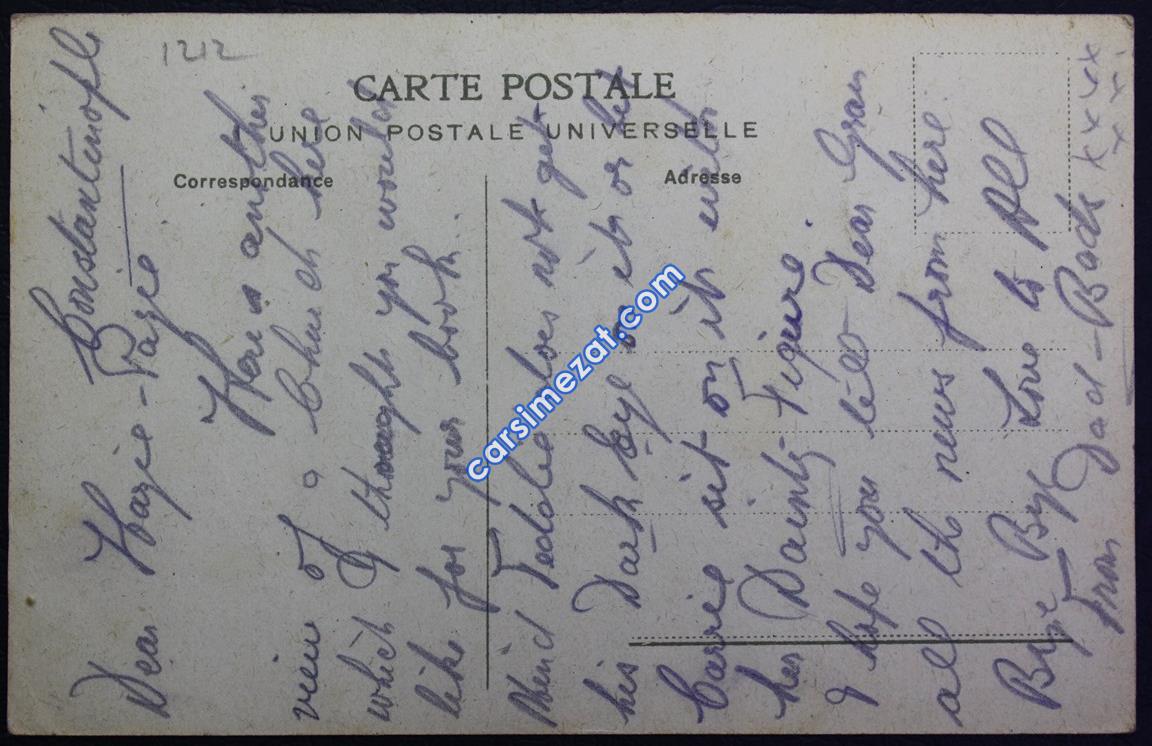 1212
CARTE POSTALE
UNION POSTALE UNIVERSELLE
Correspondance
Adresse
Constantinople
Dear Hazie-Pazie
Here is another
view of a Church here
which I thought you would
like for your book.
Mind Teddie does not get
his Dark Eye on it or let
Carrie sit on it with
her Dainty Figure.
I hope you tell Dear Gran
all the news from here
Bye Bye Love to All
From Dad-Dads x x x x
x x x
carsimezat.com